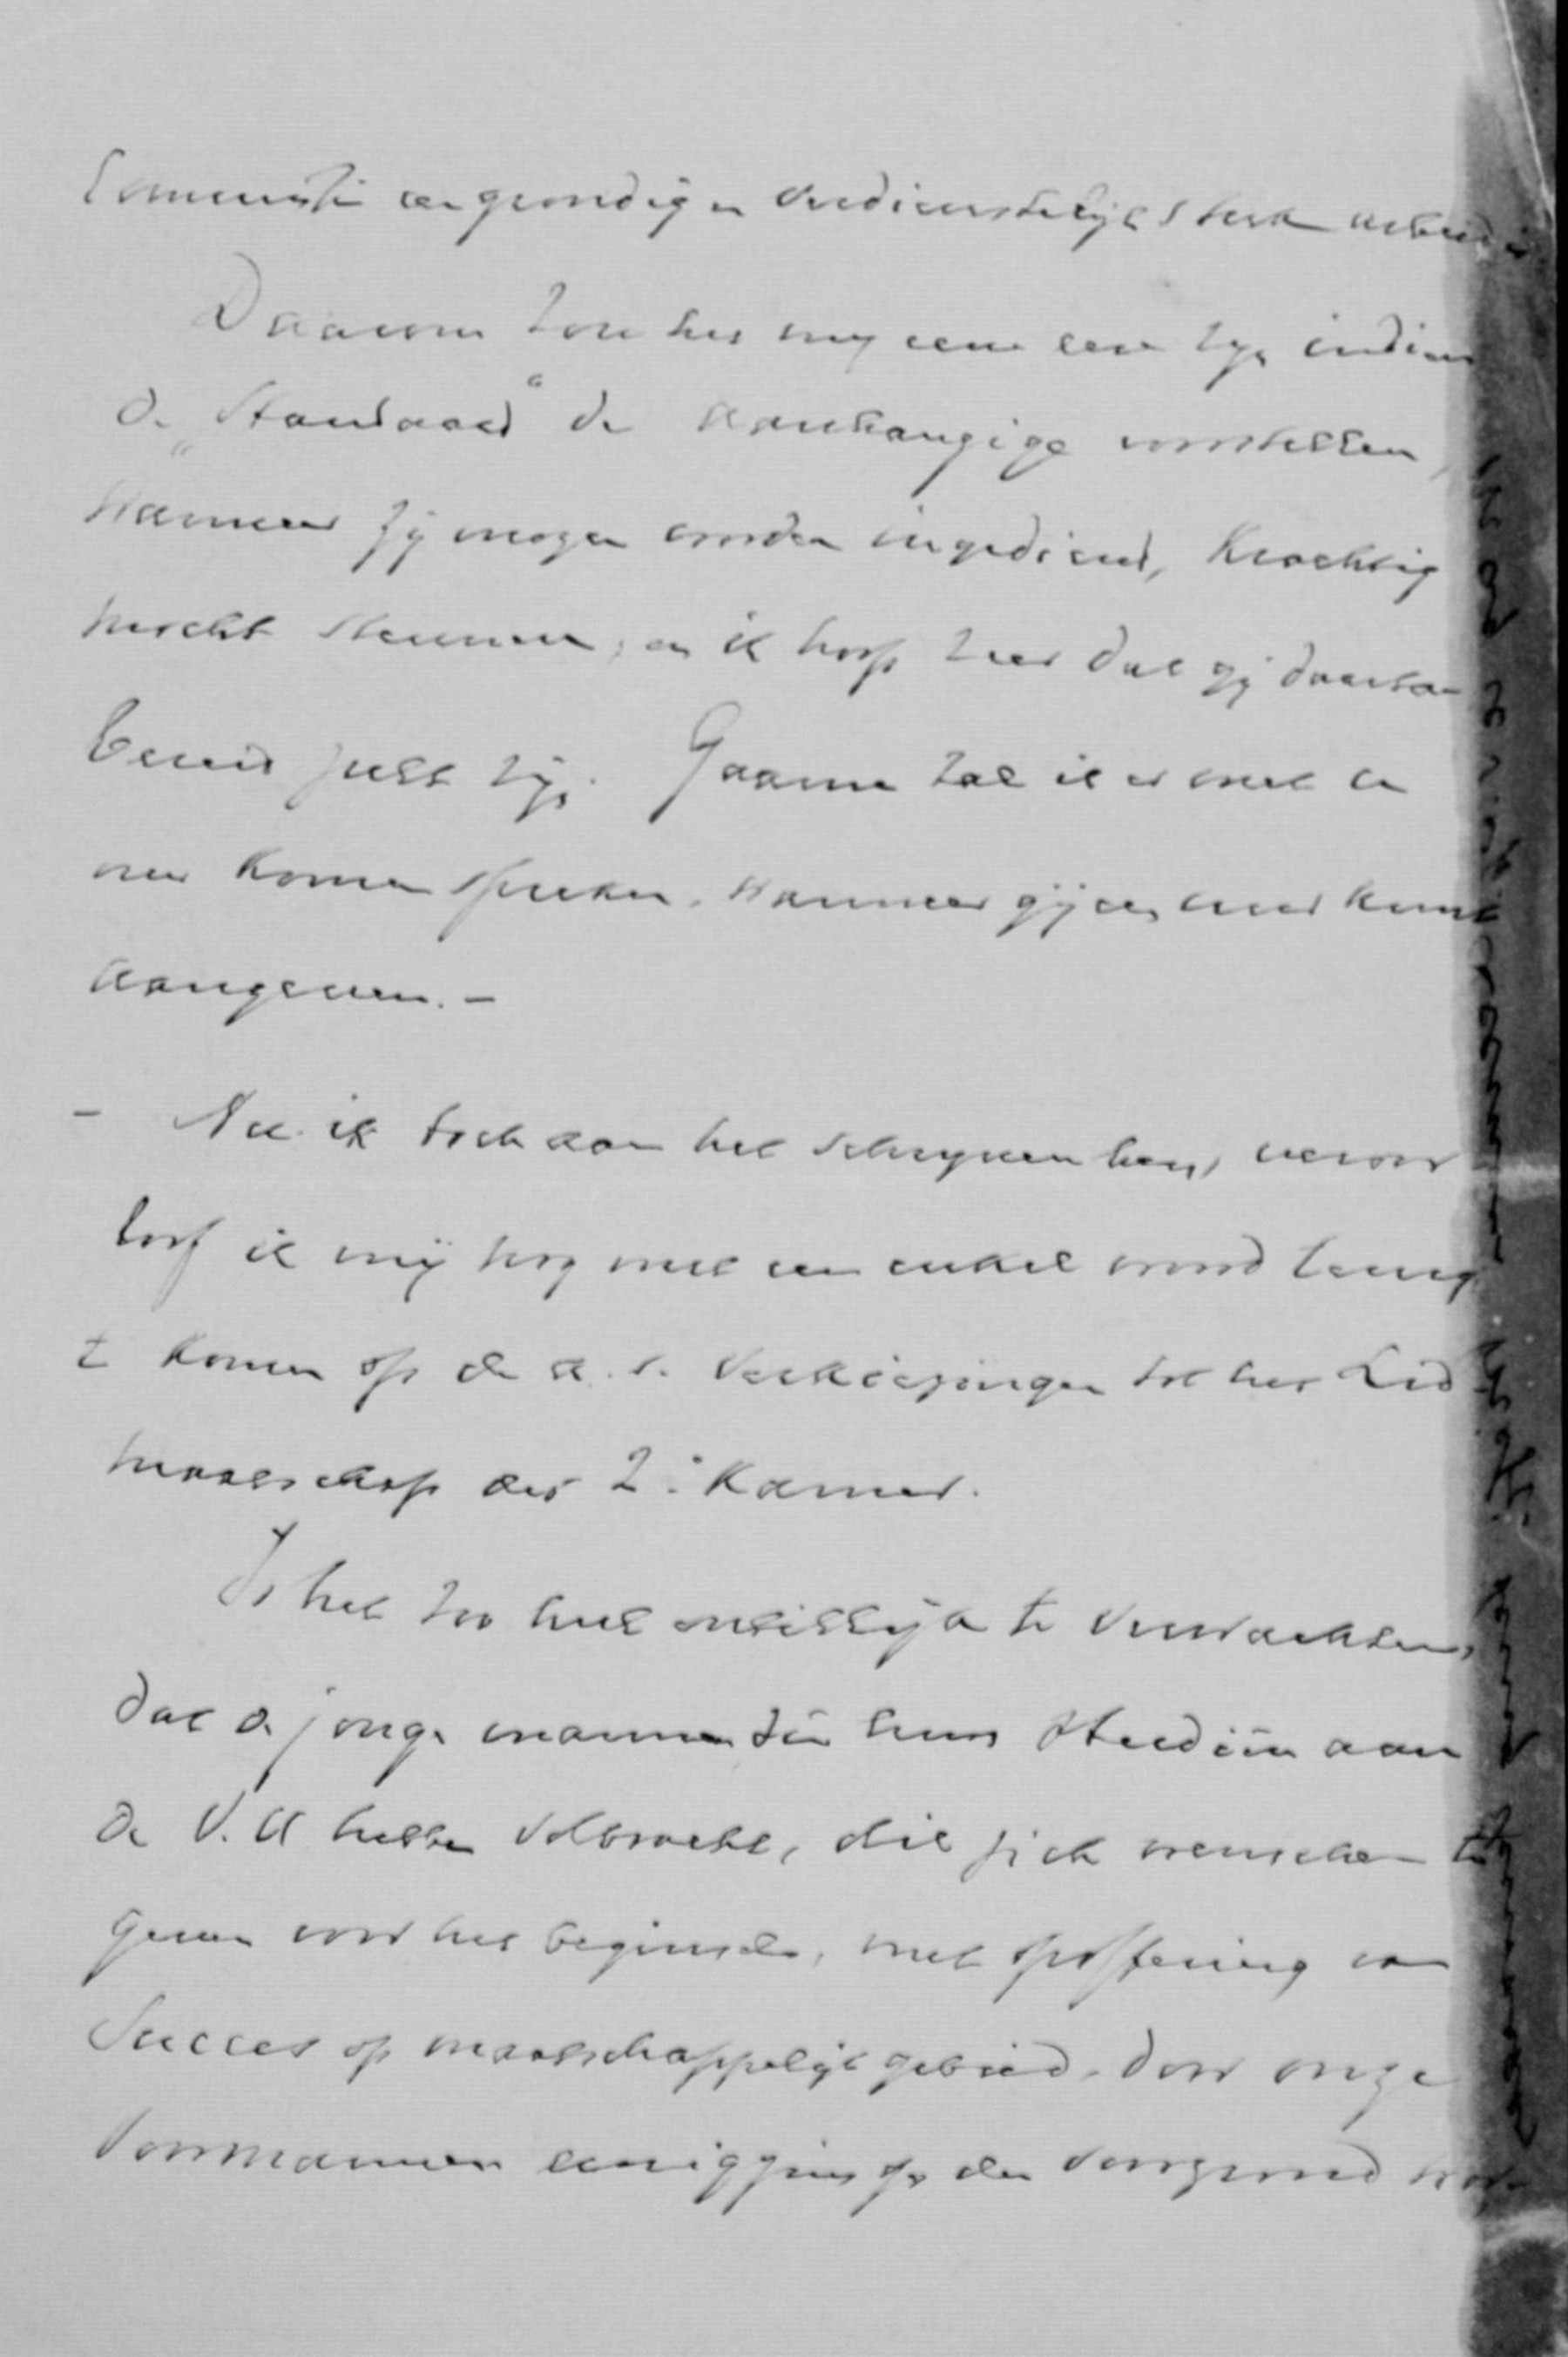 Commissie een grondig en verdienstelijk stuk arbeid
Daarom zou het mij eene eer zijn indien
de „Standaard" de aanhangige voorstellen,
wanneer zij mogen worden ingediend, krachtig
mocht steunen, en ik hoop zeer dat gij daartoe
bereid zult zijn. Gaarne zal ik er met u
over komen spreken, wanneer gij een uur kunt
aangeven. –
– Nu ik toch aan het schrijven ben, veroor
loof ik mij nog met een enkel woord terug
te komen op de a.s. verkiezingen tot het Lid
maatschap der 2e Kamer.
Is het zoo heel onbillijk te verwachten,
dat de jonge mannen die hun studiën aan
de V.U hebben volbracht, die zich wenschen te
geven voor het beginsel, met opoffering van
succes op maatschappelijk gebied, door onze
voormannen eenigszins op den voorgrond